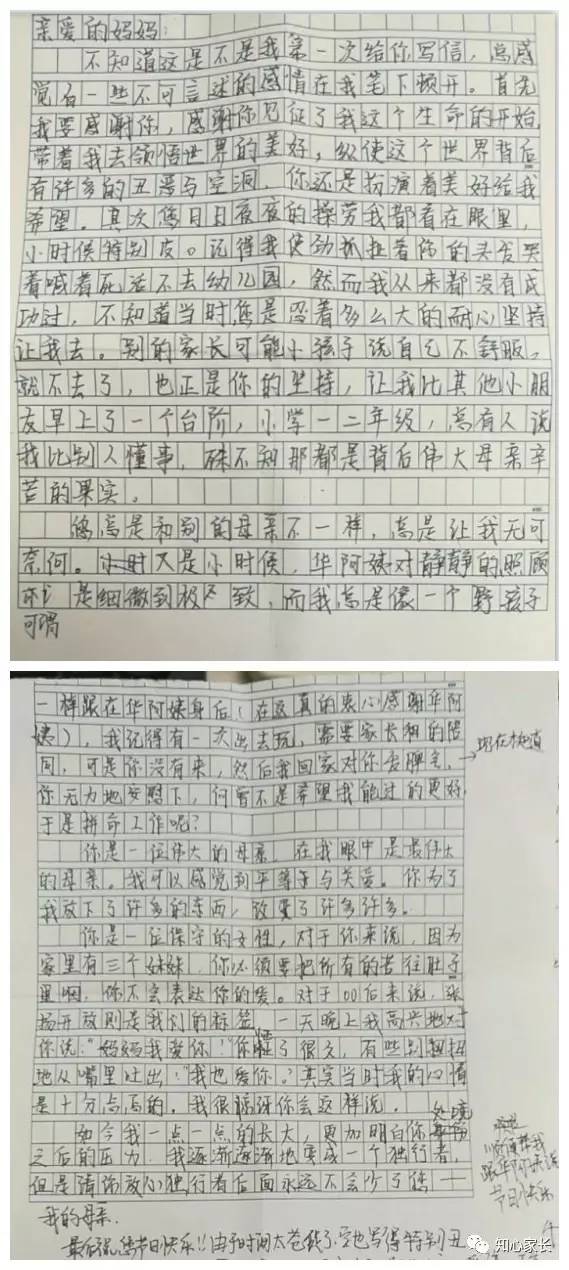 亲爱的妈妈：
不知道这是不是我第一次给你写信，总感
觉有一些不可言述的感情在我笔下顿开。首先
我要感谢你，感谢你见证了我这个生命的开始，
带着我去领悟世界的美好，纵使这个世界背后
有许多的丑恶与空洞，你还是扮演着美好给我
希望。其次您日日夜夜的操劳我都看在眼里，
小时候特别皮。记得我使劲抓扯着你的头发哭
着喊着死活不去幼儿园，然而我从来都没有成
功过，不知道当时您是忍着多么大的耐心坚持
让我去。别的家长可能小孩子说自己不舒服，
就不去了，也正是你的坚持，让我比其他小朋
友早上了一个台阶，小学一二年级，总有人说
我比别人懂事，殊不知那都是背后伟大母亲辛
苦的果实。
您总是和别的母亲不一样，总是让我无可
奈何。小时又是小时候，华阿姨对静静的照顾
是细微到极致，而我总是像一个野孩子
可谓
一样跟在华阿姨身后（在这真的衷心感谢华阿
姨），我记得有一次出去玩，需要家长相的陪
同，可是你没有来，然后我回家对你发脾气，
你无力地安慰下，何曾不是希望我能过的更好，
于是拼命工作呢？
你是一位伟大的母亲，在我眼中是最伟大
的母亲。我可以感觉到平等于与关爱。你为了
我放下了许多的东西，改变了许多许多。
你是一位保守的女性，对于你来说，因为
家里有三个妹妹，你必须要把所有的苦往肚子
里咽，你不会表达你的爱。对于00后来说，张
扬开放则是我们的标签，一天晚上我高兴地对
你说："妈妈我爱你！"你愣了很久，有些别扭扭
地从嘴里吐出："我也爱你。"其实当时我的心情
是十分点高的。我很惊讶你会这样说。
如今我一点一点的长大，更加明白你处境
之后的压力，我逐渐逐渐地变成一个独行者，
但是请你放心独行者后面永远不会少了您——
我的母亲。
最后祝您节日快乐！！由于时间太苍促了，字也写得特别丑
顺便帮我
跟华阿姨说
节日快乐
知心家长